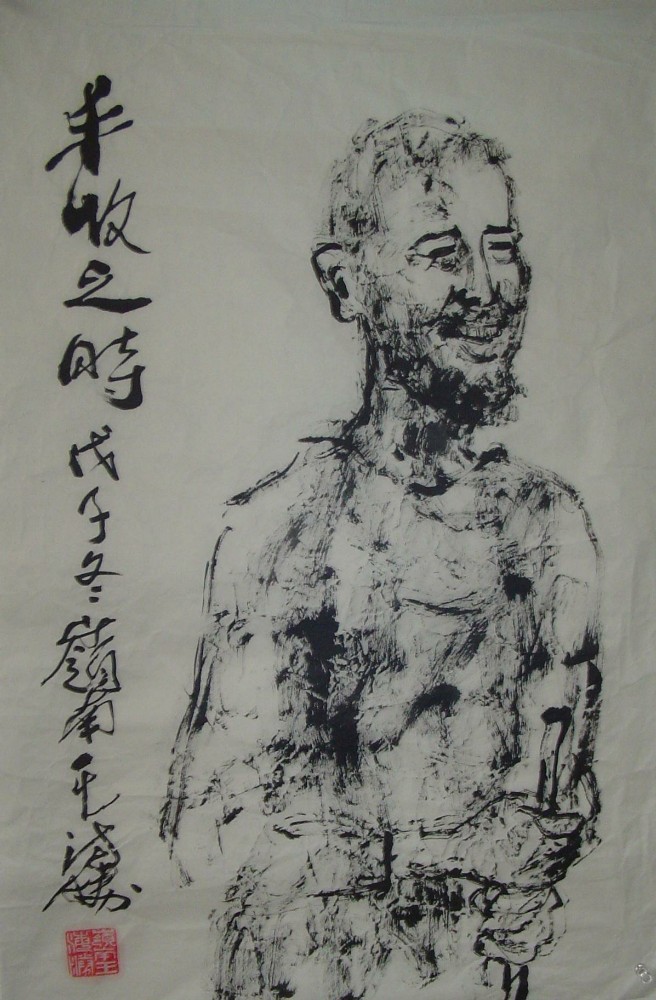 丰收之時戊子冬嶺南